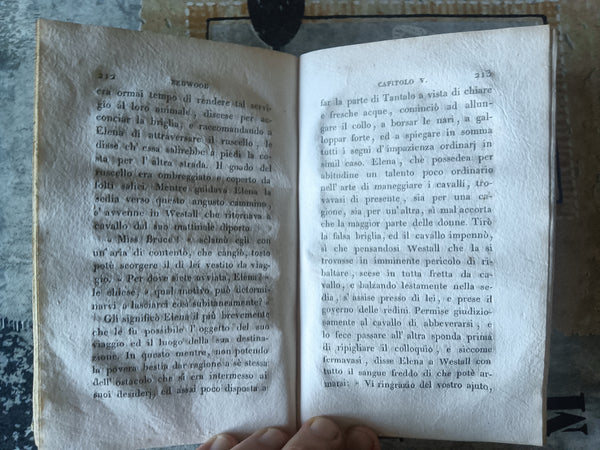 212 REDWOOD
era ormai tempo di rendere tal servi-
gio al loro animale, discese per ac-
conciar la briglia, e raccomandando a
Elena di attraversare il ruscello, le
disse ch'essa salirebbe a piedi la co-
sta per l'altra strada. Il guado del
ruscello era ombreggiato e coperto da
folti salici. Mentre guidava Elena la
sedia verso questo angusto cammino,
s'avvenne in Westall che ritornava a
cavallo dal suo mattinale diporto.
» Miss Bruce! » sclamò egli con
un'aria di contento, che cangiò, tosto
potè scorgere il di lei vestito da viag-
gio. » Per dove siete avviata, Elena? »
le chiese, » qual motivo può determi-
narvi a lasciarci così subitaneamente? »
Gli significò Elena il più brevemente
che le fu possibile l'oggetto del suo
viaggio ed il luogo della sua destina-
zione. In questo mentre, non potendo
la povera bestia dar ragione a sè stessa
dell'ostacolo che si era intermesso ai
suoi desiderj, ed assai poco disposta a
CAPITOLO V. 213
far la parte di Tantalo a vista di chiare
e fresche acque, cominciò ad allun-
gare il collo, a borsar le nari, a gal-
loppar forte, ed a spiegare in somma
tutti i segni d'impazienza ordinarj in
simil caso. Elena, che possedea per
abitudine un talento poco ordinario
nell'arte di maneggiare i cavalli, tro-
vavasi di presente, sia per una ca-
gione, sia per un'altra, sì mal accorta
che la maggior parte delle donne. Tirò
la falsa briglia, ed il cavallo impennò,
il che pensandosi Westall che la si
trovasse in imminente pericolo di ri-
baltare, scese in tutta fretta da ca-
vallo, e balzando lestamente nella se-
dia, s'assise presso di lei, e prese il
governo delle redini. Permise giudizio-
samente al cavallo di abbeverarsi, e
lo fece passare all'altra sponda prima
di ripigliare il colloquio, e siccome
fermavasi, disse Elena a Westall con
tutto il sangue freddo di che potè ar-
marsi: » Vi ringrazio del vostro ajuto,
M